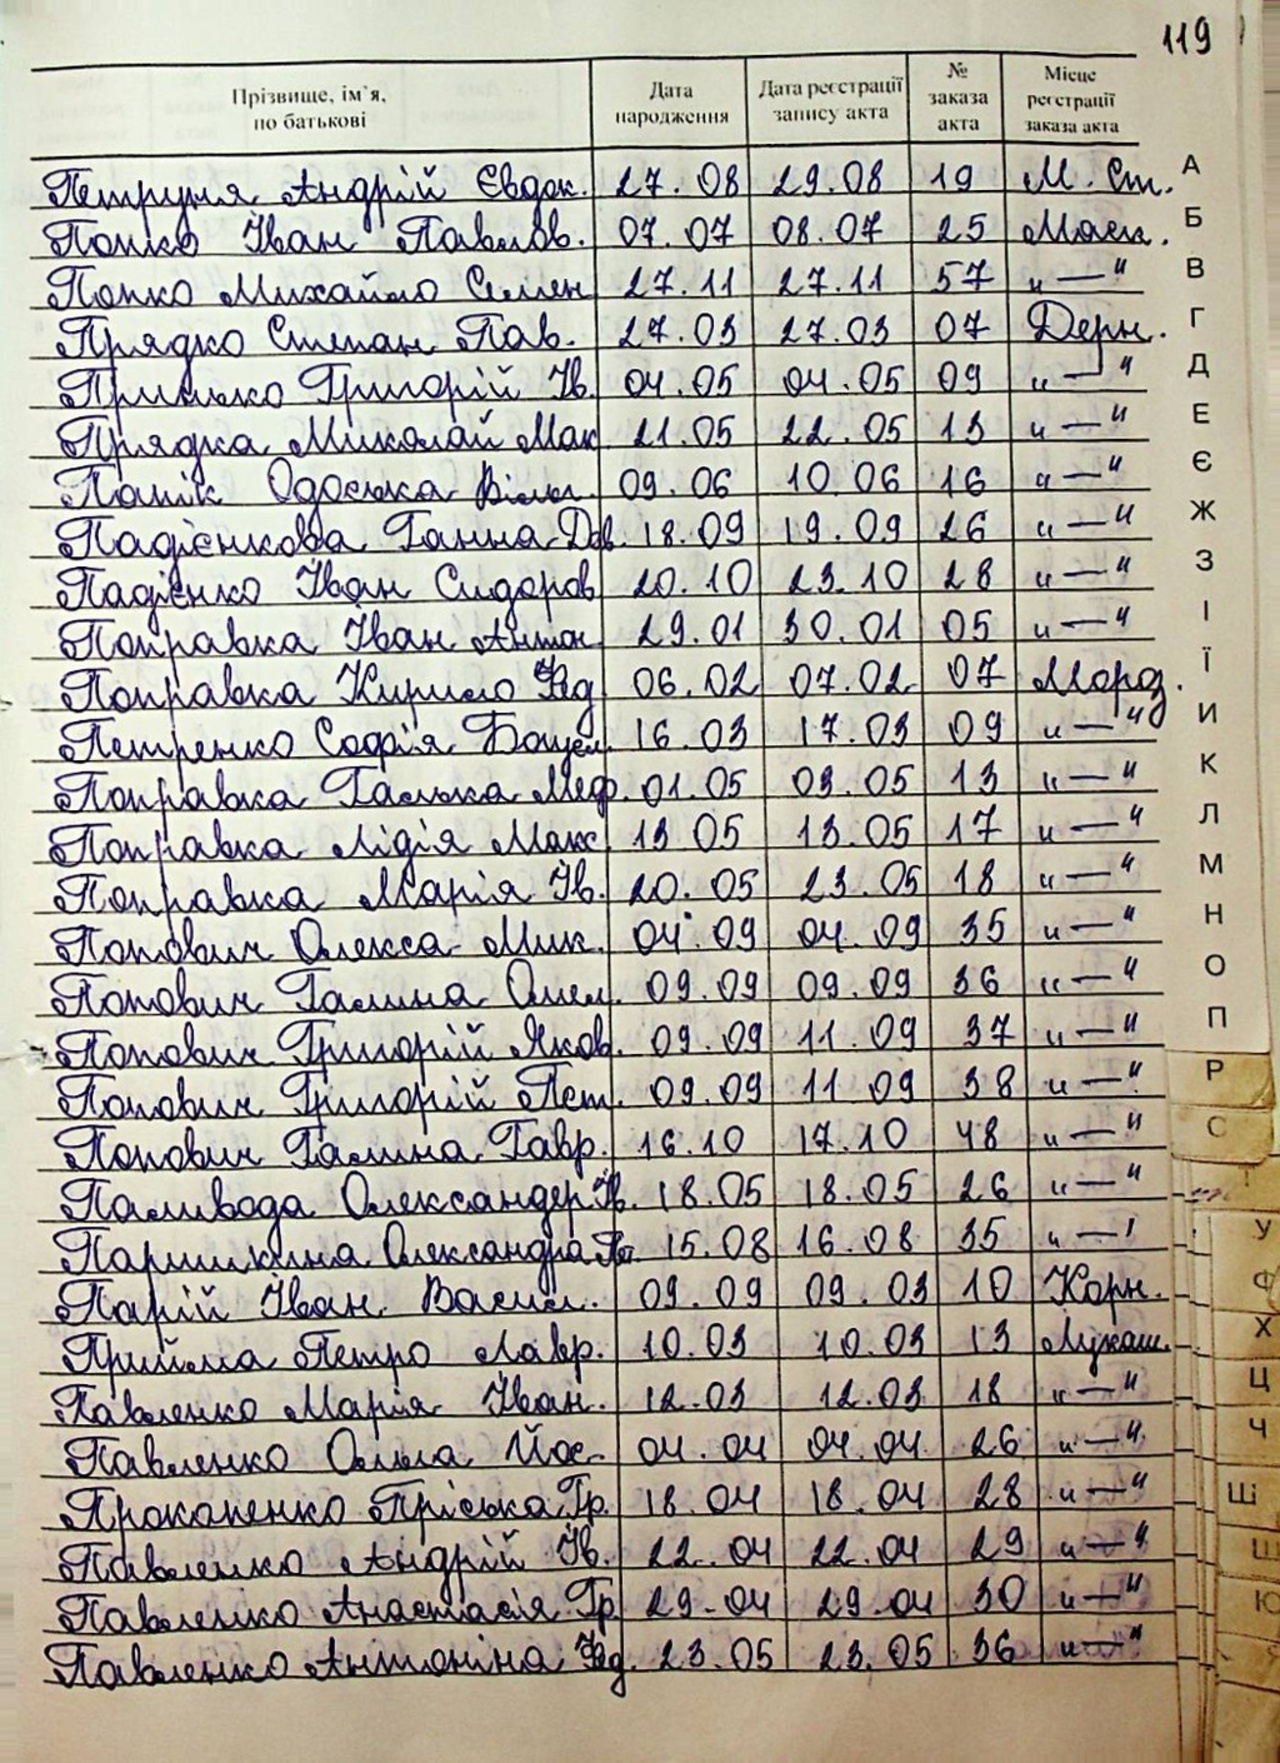 119
Прізвище, ім'я, по батькові | Дата народження | Дата реєстрації запису акта | № заказа акта | Місце реєстрації заказа акта
Петруня Андрій Євдок. 27.08 29.08 19 М. Ст.
Попко Іван Павлов. 07.07 08.07 25 Маск.
Попко Михайло Семен 27.11 27.11 57 „—"
Прядко Степан Пав. 27.03 27.03 07 Дерн.
Принько Григорій Ів. 04.05 04.05 09 „—"
Прядка Миколай Мак 21.05 22.05 13 „—"
Папік Одоська 09.06 10.06 16 „—"
Падієнкова Ганна Дав. 18.09 19.09 26 „—"
Падієнко Іван Сидоров 20.10 23.10 28 „—"
Поправка Іван Антон 29.01 30.01 05 „—"
Поправка Кирило Фед 06.02 07.02 07 Мороз.
Петренко Софія 16.03 17.03 09 „—"
Поправка Галька Меф. 01.05 03.05 13 „—"
Поправка Лідія Макс 13 05 13.05 17 „—"
Поправка Марія Ів. 20.05 23.05 18 „—"
Попович Олекса Мик. 04.09 04.09 35 „—"
Попович Галина Омел. 09.09 09.09 36 „—"
Попович Григорій Яков. 09.09 11.09 37 „—"
Попович Григорій Пет. 09.09 11.09 38 „—"
Попович Галина Гавр. 16.10 17.10 48 „—"
Паливода Олександер Ів. 18.05 18.05 26 „—"
Паришкина Олександра 15.08 16.08 35 „—"
Парій Іван Васил. 09.09 09.03 10 Корн.
Прийма Петро Лавр. 10.03 10.03 13 Лукаш.
Павленко Марія Іван. 12.03 12.03 18 „—"
Павленко Ольга Йос. 04.04 04.04 26 „—"
Прокопенко Пріська Гр. 18.04 18.04 28 „—"
Павленко Андрій Ів. 22.04 22.04 29 „—"
Павленко Анастасія Гр. 29.04 29.04 30 „—"
Павленко Антоніна Фед. 23.05 23.05 36 „—"
А
Б
В
Г
Д
Е
Є
Ж
З
І
Ї
И
К
Л
М
Н
О
П
Р
С
Т
У
Ф
Х
Ц
Ч
Щ
Ш
Ю